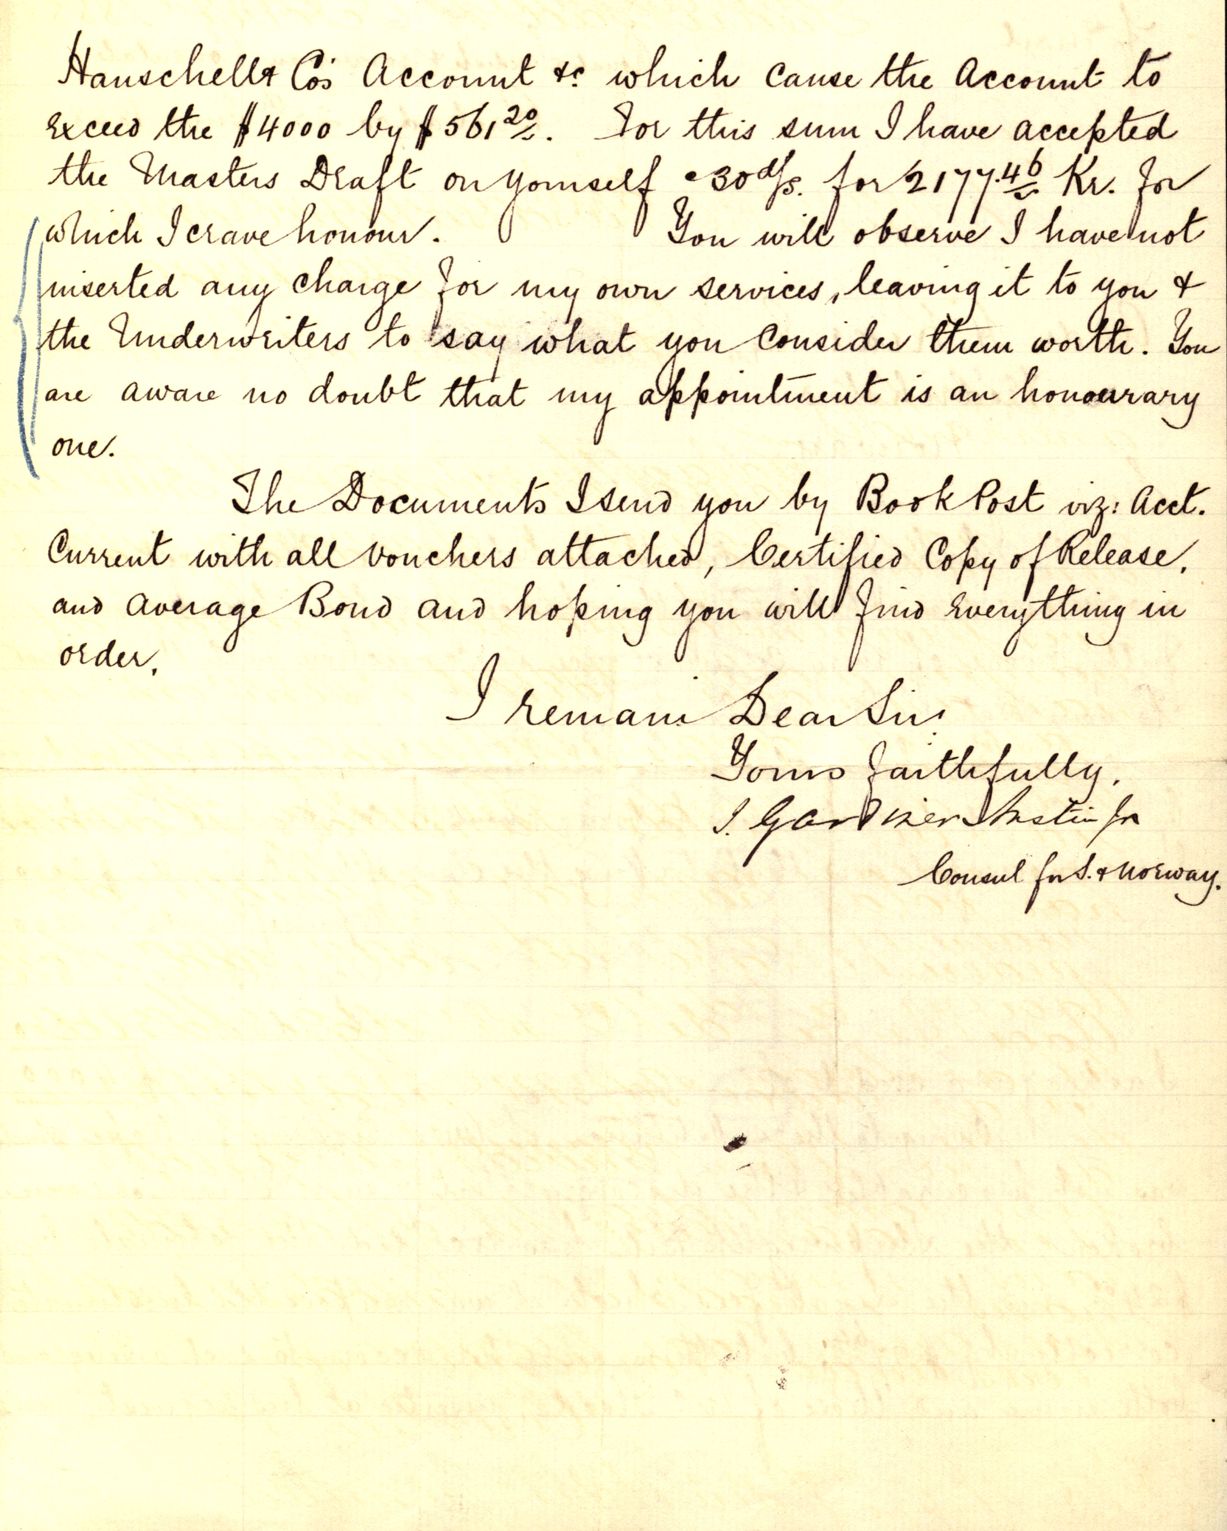 Hanschell & Co's Account &c. which cause the Account to
exceed the $4000 by $561 20/-. For this sum I have accepted
the Masters Draft on yourself @ 30 d/s. for 2177.46 Kr. for
which I crave honour. You will observe I have not
inserted any charge for my own services, leaving it to you &
the Underwriters to say what you consider them worth. You
are aware no doubt that my appointment is an honourary
one.
The Documents I send you by Book Post viz: Acct.
Current with all vouchers attached, Certified Copy of Release,
and Average Bond and hoping you will find everything in
order,
I remain Dear Sir,
Yours faithfully,
J. Gardiner Austin Jr
Consul for S. & Norway.